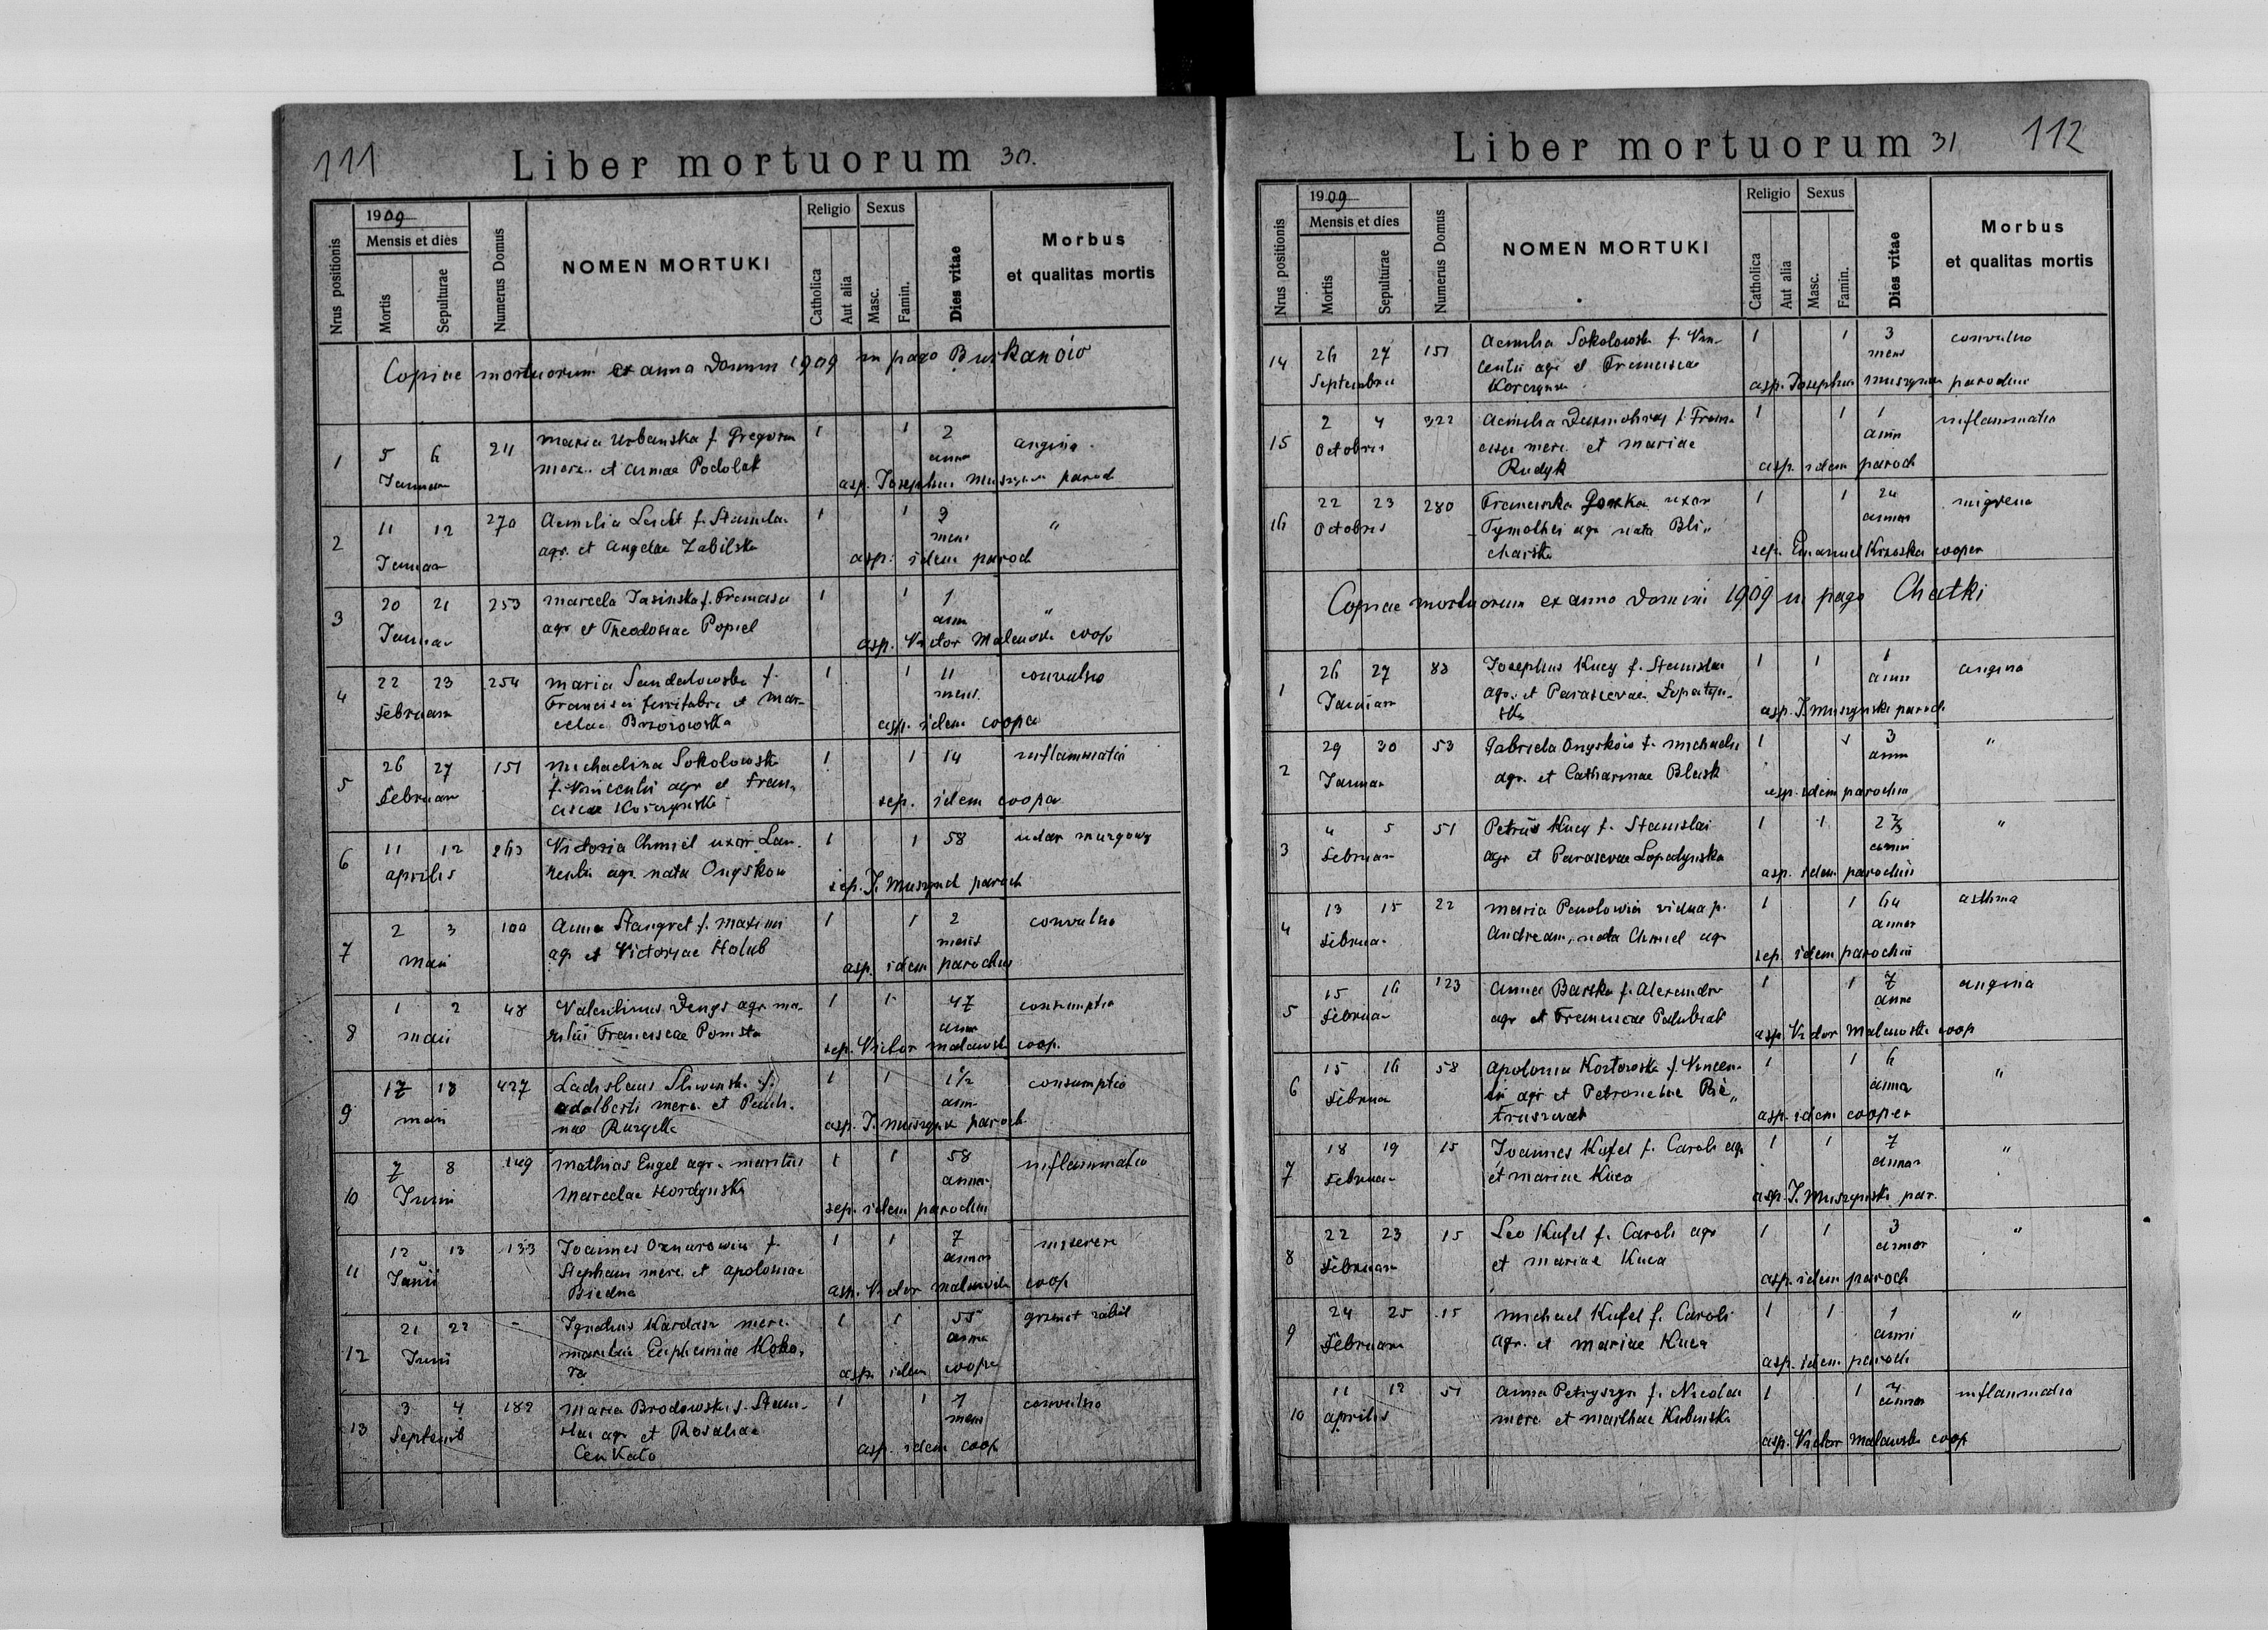 111
Liber mortuorum 30.
Nrus positionis
1909
Mensis et dies
Mortis
Sepulturae
Numerus Domus
NOMEN MORTUKI
Religio
Catholica
Aut alia
Sexus
Masc.
Famin.
Dies vitae
Morbus
et qualitas mortis
Copiae mortuorum ex anno Domini 1909 in pago Burkanów
1 5 6 211 Maria Urbanska f. Gregorii 1 1 2 angina
Januar merc. et Annae Podolak anni
asp. Josephus Muszyns paroch
2 11 12 270 Aemilia f. Stanislai 1 1 9 "
Januar agr. et Angelae Zabilska mens
asp. idem paroch
3 20 21 253 Marcela Jasinska f. Francisci 1 1 1 "
Januar agr et Theodosiae Popiel anni
asp. Victor Malawski coop
4 22 23 254 Maria Sandalowska f. 1 1 11 convulsio
Februar Francisci ferrifabri et Mar- mens.
celae Brzozowska asp. idem coopa
5 26 27 151 Michaelina Sokolowska 1 1 14 inflammatio
Februar f. Vincentii agr et Fran-
ciscae Korczynska sep. idem coopa
6 11 12 263 Victoria Chmiel uxor Lau- 1 1 58 udar muzgowy
Aprilis rentii agr. nata Onyskow
sep. J. Muszynsk paroch
7 2 3 100 Anna Stangret f. Maximi 1 1 2 convulsio
Maii agr et Victoriae Holub mens
asp. idem parochus
8 1 2 48 Valentinus Dengs agr. ma- 1 1 47 consumptio
Maii ritus Franciscae Ponista anni
sep. Victor Malawski coop.
9 17 18 427 Ladislaus Sliwinski f. 1 1 1 1/2 consumptio
Maii Adalberti merc. et Pauli- anni
nae asp. J. Muszynsk paroch
10 7 8 149 Mathias Engel agr. maritus 1 1 58 inflammatio
Junii Marcelae Hordynska annor
sep. idem parochus
11 12 13 133 Joannes Oznarowicz f. 1 1 7 miserere
Junii Stephani merc. et Apoloniae annor
Biedna asp. Victor Malawski coop
12 21 22 - Ignatius Kardasz merc. 1 1 55 grzmot zabił
Junii maritus Euphemiae Koko- anni
ra asp. idem coopa
13 3 4 182 Maria Brodowska f. Stani- 1 1 7 convulsio
Septemb slai agr et Rosaliae mens
Cenkalo asp. idem coop
112
Liber mortuorum 31
Nrus positionis
1909
Mensis et dies
Mortis
Sepulturae
Numerus Domus
NOMEN MORTUKI
Religio
Catholica
Aut alia
Sexus
Masc.
Famin.
Dies vitae
Morbus
et qualitas mortis
14 26 27 151 Aemilia Sokolowska f. Vin- 1 1 3 convulsio
Septembris centii agr et Franciscae mens
Korczynska asp. Josephus Muszynsk parochus
15 2 4 322 Aemilia f. Fran- 1 1 1 inflammatio
Octobris cisci merc. et Mariae anni
Rudyk asp. idem paroch
16 22 23 280 Franciszka uxor 1 1 24 nigrena
Octobris Tymothei agr nata Bli- annor
charska sep. Emanuel Krzoska cooper
Copiae mortuorum ex anno Domini 1909 in pago Chatki
1 26 27 83 Josephus Kucy f. Stanislai 1 1 1 angina
Januar agr. et Parascevae Lopatyn- anni
ska asp. J. Muszynski paroch
2 29 30 53 Gabriela Onysków f. Michaelis 1 1 3 "
Januar agr. et Catharinae Bluszk anni
asp. idem parochus
3 4 5 51 Petrus Kucy f. Stanislai 1 1 2 2/3 "
Februar agr et Parascevae Lopadynska anni
asp. idem parochus
4 13 15 22 Maria vidua p. 1 1 64 asthma
Februa- Andream, nata Chmiel agr annor
sep. idem parochus
5 15 16 123 Anna Barska f. Alexandri 1 1 7 angina
Februa- agr et Franciscae Palubiak anno
asp. Victor Malawski coop
6 15 16 58 Apolonia Kortowska f. Vincen- 1 1 6 "
Februa tii agr et Petronelae Pie- anno
truszewat asp. idem cooper
7 18 19 15 Joannes Kufel f. Caroli agr 1 1 7 "
Februar et Mariae Kuca annor
asp. J. Muszynski par.
8 22 23 15 Leo Kufel f. Caroli agr 1 1 3 "
Februar et Mariae Kuca annor
asp. idem paroch
9 24 25 15 Michael Kufel f. Caroli 1 1 1 "
Februar agr. et Mariae Kuca anni
asp. idem paroch
10 11 12 51 Anna Petryszyn f. Nicolai 1 1 4 inflammatio
Aprilis merc et Marthae Kubinska annor
asp. Victor Malawski coop